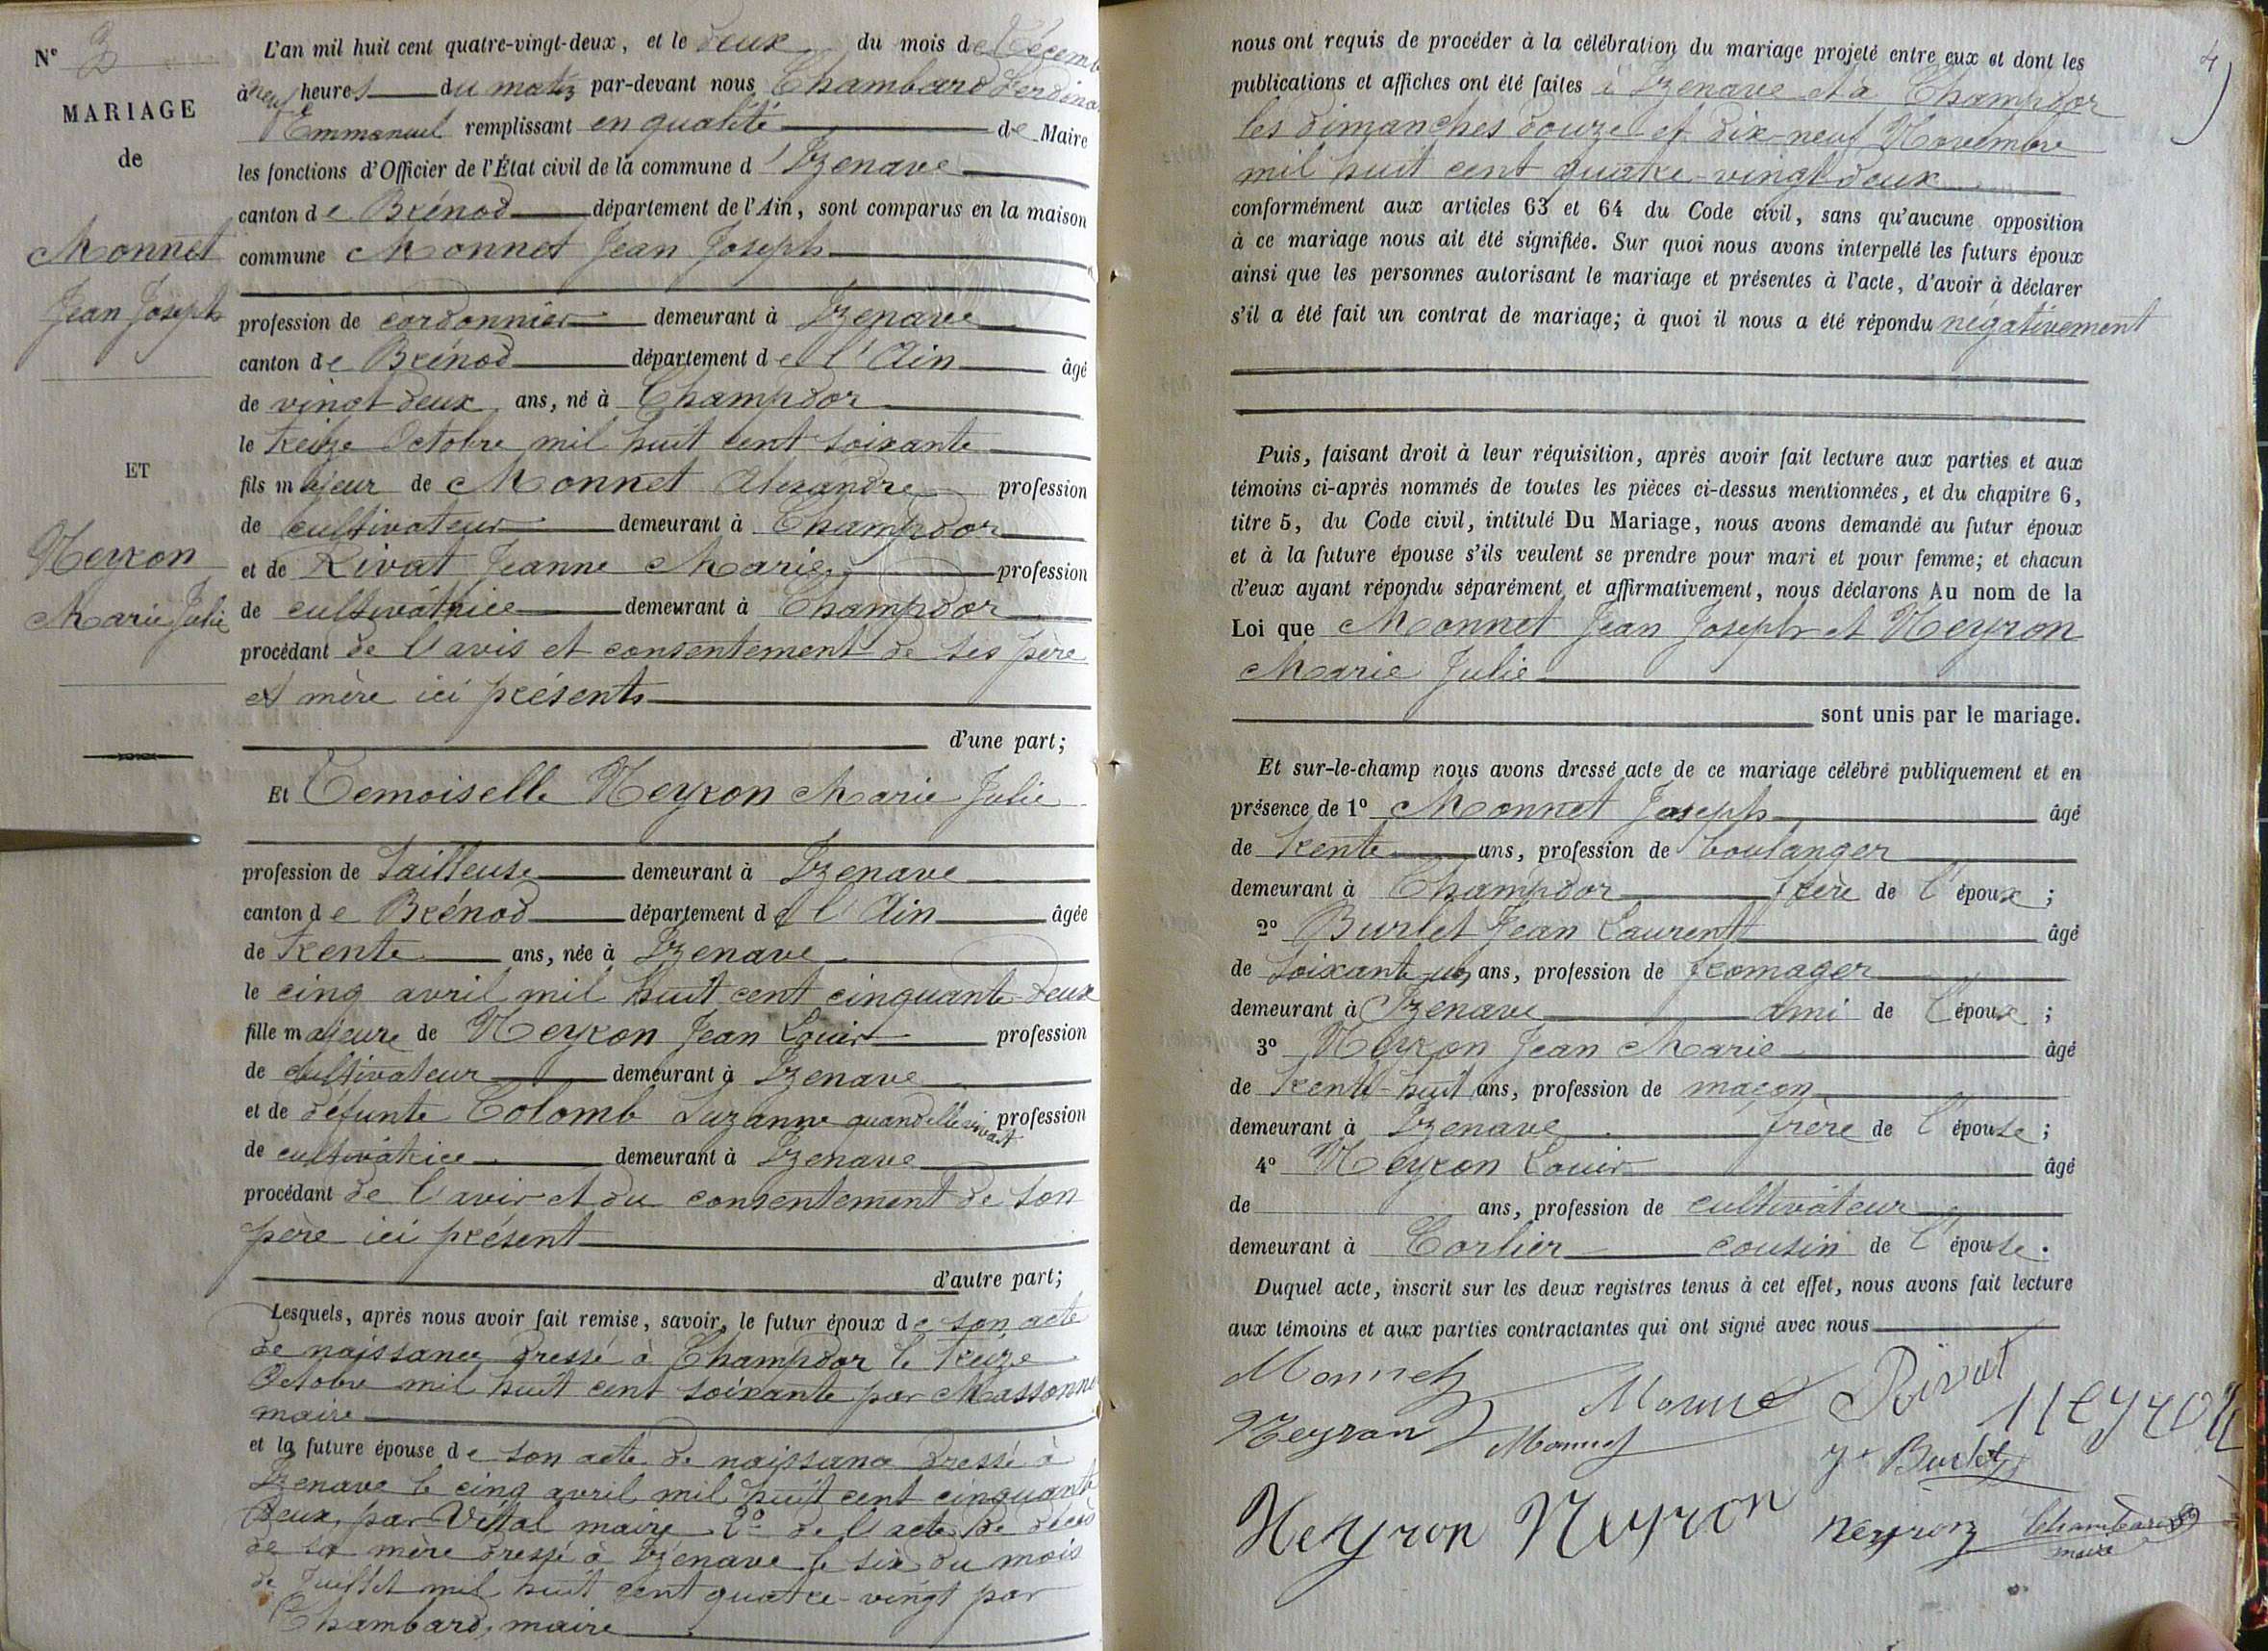 N° 3
MARIAGE
de
Monnet
Jean Joseph
ET
Neyron
Marie Julie
L'an mil huit cent quatre-vingt-deux, et le deux du mois de Décemb
à neuf heures du matin par-devant nous Chambard Ferdina
Emmanuel remplissant en qualité de Maire
les fonctions d'Officier de l'État civil de la commune d'Izenave
canton de Brénod département de l'Ain, sont comparus en la maison
commune Monnet Jean Joseph
profession de cordonnier demeurant à Izenave
canton de Brénod département de l'Ain âgé
de vingt deux ans, né à Champdor
le treize Octobre mil huit cent soixante
fils majeur de Monnet Alexandre profession
de cultivateur demeurant à Champdor
et de Rivat Jeanne Marie profession
de cultivatrice demeurant à Champdor
procédant de l'avis et consentement de ses père
et mère ici présents
d'une part;
Et Demoiselle Neyron Marie Julie
profession de tailleuse demeurant à Izenave
canton de Brénod département de l'Ain âgée
de trente ans, née à Izenave
le cinq avril mil huit cent cinquante-deux
fille majeure de Neyron Jean Louis profession
de cultivateur demeurant à Izenave
et de défunte Colomb Suzanne quand elle vivait profession
de cultivatrice demeurant à Izenave
procédant de l'avis et du consentement de son
père ici présent
d'autre part;
Lesquels, après nous avoir fait remise, savoir, le futur époux de son acte
de naissance dressé à Champdor le treize
Octobre mil huit cent soixante par Massonne
maire
et la future épouse de son acte de naissance dressé à
Izenave le cinq avril mil huit cent cinquante
deux, par Vittal maire 2° de l'acte de décès
de sa mère dressé à Izenave le six du mois
de Juillet mil huit cent quatre-vingt par
Chambard, maire
4
nous ont requis de procéder à la célébration du mariage projeté entre eux et dont les
publications et affiches ont été faites à Izenave et à Champdor
les dimanches douze et dix-neuf Novembre
mil huit cent quatre-vingt-deux
conformément aux articles 63 et 64 du Code civil, sans qu'aucune opposition
à ce mariage nous ait été signifiée. Sur quoi nous avons interpellé les futurs époux
ainsi que les personnes autorisant le mariage et présentes à l'acte, d'avoir à déclarer
s'il a été fait un contrat de mariage; à quoi il nous a été répondu négativement
Puis, faisant droit à leur réquisition, après avoir fait lecture aux parties et aux
témoins ci-après nommés de toutes les pièces ci-dessus mentionnées, et du chapitre 6,
titre 5, du Code civil, intitulé Du Mariage, nous avons demandé au futur époux
et à la future épouse s'ils veulent se prendre pour mari et pour femme; et chacun
d'eux ayant répondu séparément et affirmativement, nous déclarons Au nom de la
Loi que Monnet Jean Joseph et Neyron
Marie Julie
sont unis par le mariage.
Et sur-le-champ nous avons dressé acte de ce mariage célébré publiquement et en
présence de 1° Monnet Joseph âgé
de trente ans, profession de boulanger
demeurant à Champdor frère de l'époux;
2° Burlet Jean Laurent âgé
de soixante un ans, profession de fromager
demeurant à Izenave ami de l'époux;
3° Neyron Jean Marie âgé
de trente-huit ans, profession de maçon
demeurant à Izenave frère de l'épouse;
4° Neyron Louis âgé
de ans, profession de cultivateur
demeurant à Corlier cousin de l'épouse.
Duquel acte, inscrit sur les deux registres tenus à cet effet, nous avons fait lecture
aux témoins et aux parties contractantes qui ont signé avec nous
Monnet Monnet Rivat Neyron
Neyron Monnet Burlet
Neyron Neyron neyron Chambard
maire